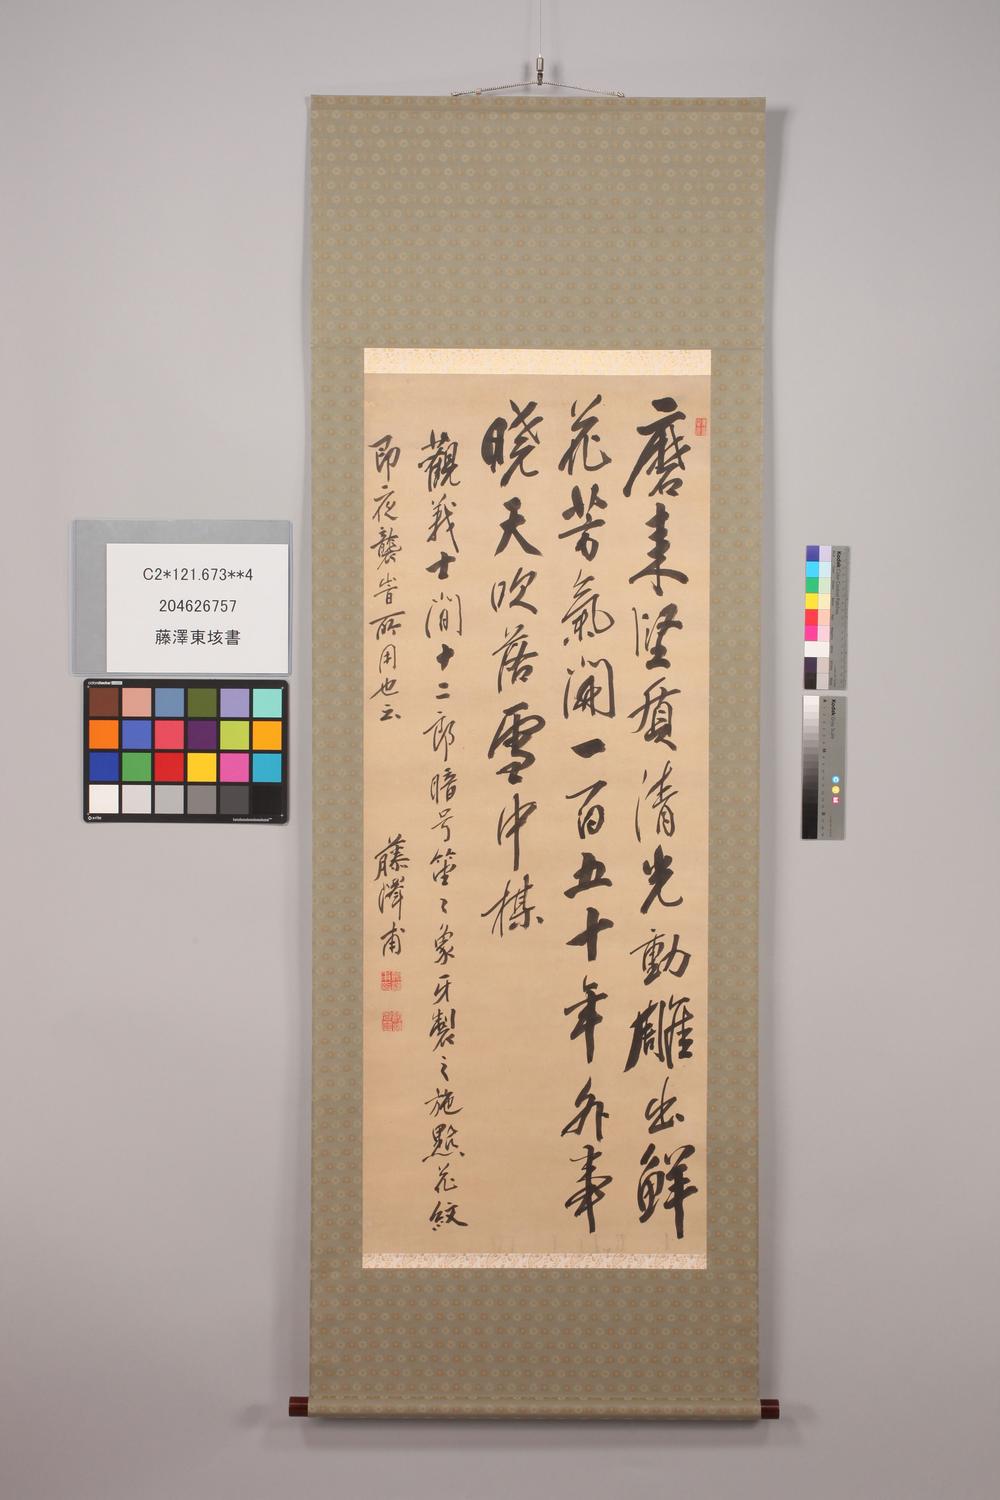 磨来堅質清光動雕出鮮
花芳氣闌一百五十年外事
暁天吹落雪中楳
觀義士間十二郎暗号笛々象牙製之施點花紋
即夜襲旹所用也云
藤澤甫
C2*121.673**4
204626757
藤澤東垓書